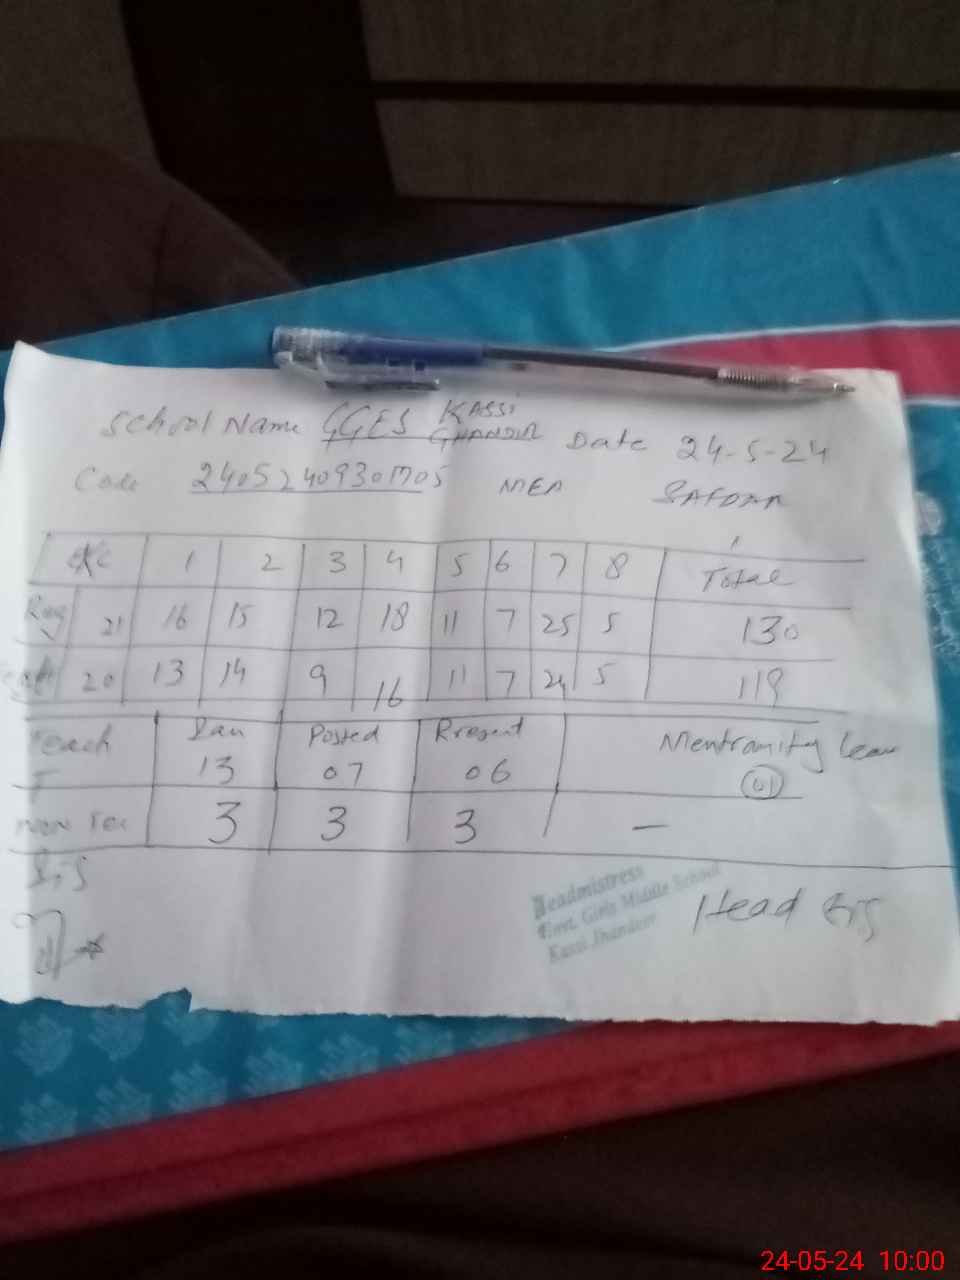 School Name GGES KASSI
Date 24-5-24
Code MEA SAFDAR
1 2 3 4 5 6 7 8 Total
Reg 21 16 15 12 18 11 7 25 5 130
20 13 14 9 16 11 7 24 5 119
Teach San Posted Present Mentramity leav
13 07 06 01
NON Tea 3 3 3 —
Sig
Headmistress
Govt. Girls Middle School
Kassi Jhandeer
Head Sig
24-05-24 10:00